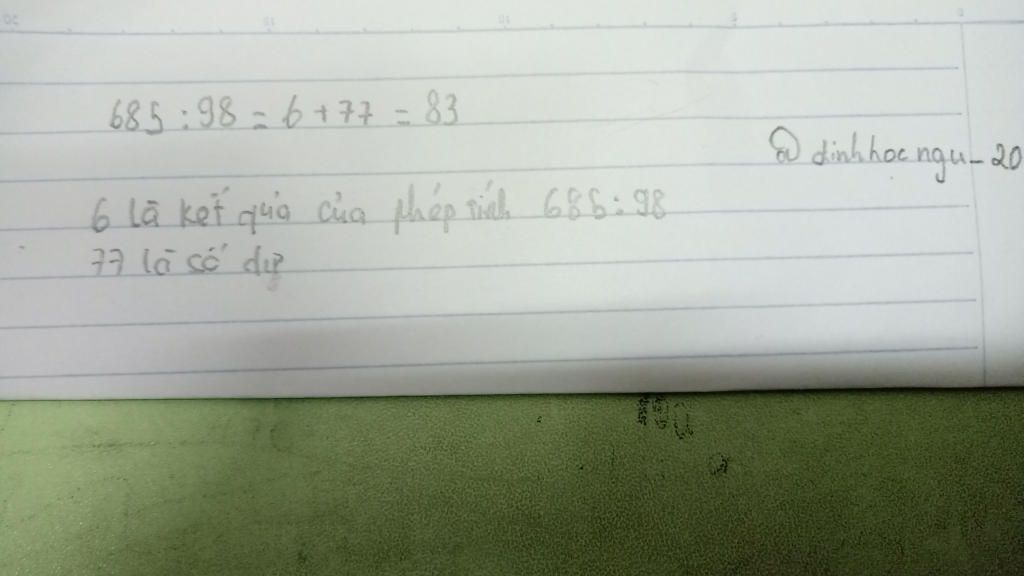 685 : 98 = 6 + 77 = 83
@ dinhhocngu_20
6 là kết quả của phép tính 685 : 98
77 là số dư